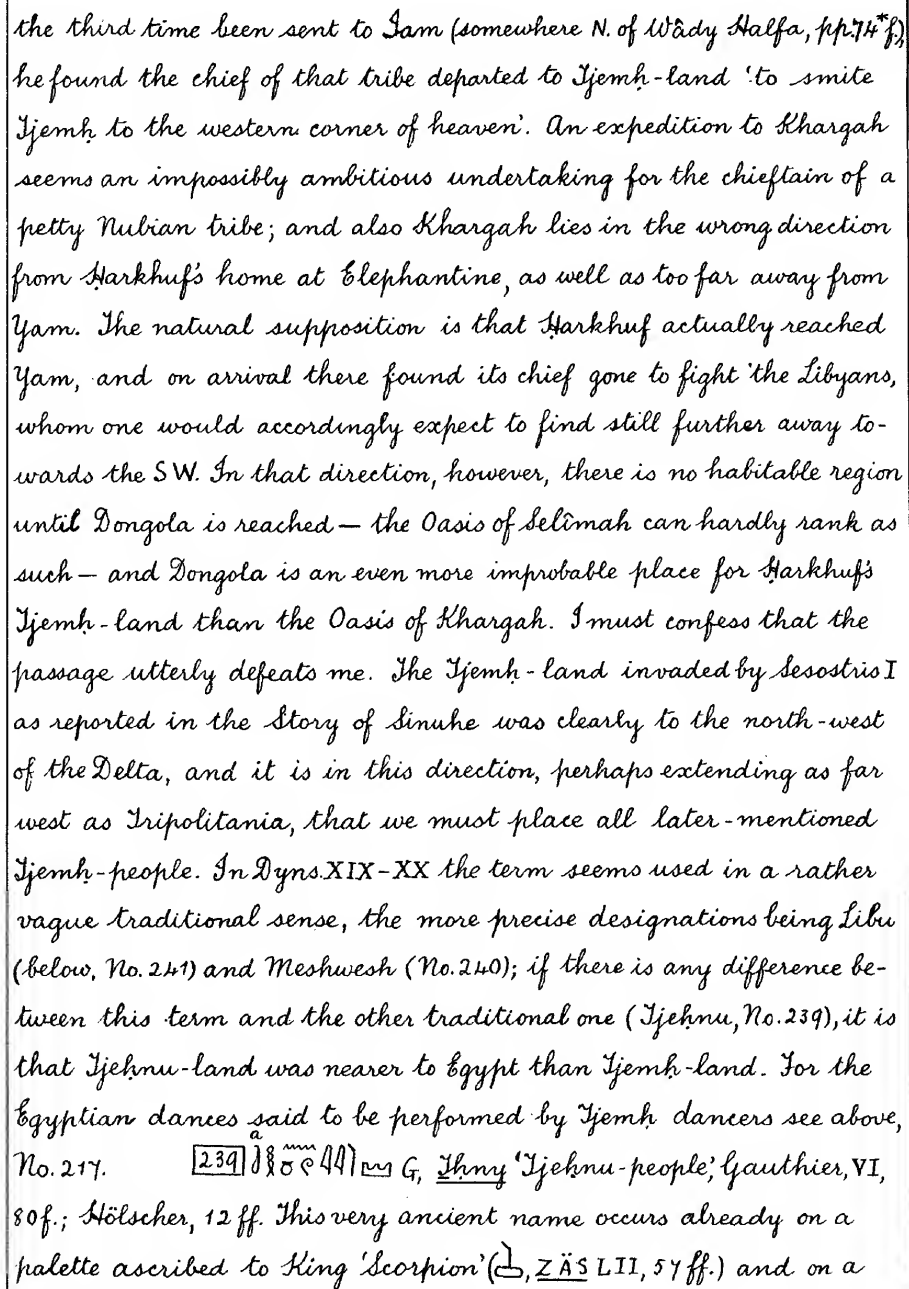 the third time been sent to Iam (somewhere N. of Wâdy Halfa, pp. 74* f.),
he found the chief of that tribe departed to Tjemḥ-land ‘to smite
Tjemḥ to the western corner of heaven’. An expedition to Khargah
seems an impossibly ambitious undertaking for the chieftain of a
petty Nubian tribe; and also Khargah lies in the wrong direction
from Ḥarkhuf's home at Elephantine, as well as too far away from
Yam. The natural supposition is that Ḥarkhuf actually reached
Yam, and on arrival there found its chief gone to fight the Libyans,
whom one would accordingly expect to find still further away to-
wards the SW. In that direction, however, there is no habitable region
until Dongola is reached — the Oasis of Selîmah can hardly rank as
such — and Dongola is an even more improbable place for Ḥarkhuf's
Tjemḥ-land than the Oasis of Khargah. I must confess that the
passage utterly defeats me. The Tjemḥ-land invaded by Sesostris I
as reported in the Story of Sinuhe was clearly to the north-west
of the Delta, and it is in this direction, perhaps extending as far
west as Tripolitania, that we must place all later-mentioned
Tjemḥ-people. In Dyns. XIX-XX the term seems used in a rather
vague traditional sense, the more precise designations being Libu
(below, No. 241) and Meshwesh (No. 240); if there is any difference be-
tween this term and the other traditional one (Tjeḥnu, No. 239), it is
that Tjeḥnu-land was nearer to Egypt than Tjemḥ-land. For the
Egyptian dances said to be performed by Tjemḥ dancers see above,
No. 217. 239 a G, Ṯḥny ‘Tjeḥnu-people’, Gauthier, VI,
80 f.; Hölscher, 12 ff. This very ancient name occurs already on a
palette ascribed to King ‘Scorpion’ (, ZÄS LII, 57 ff.) and on a